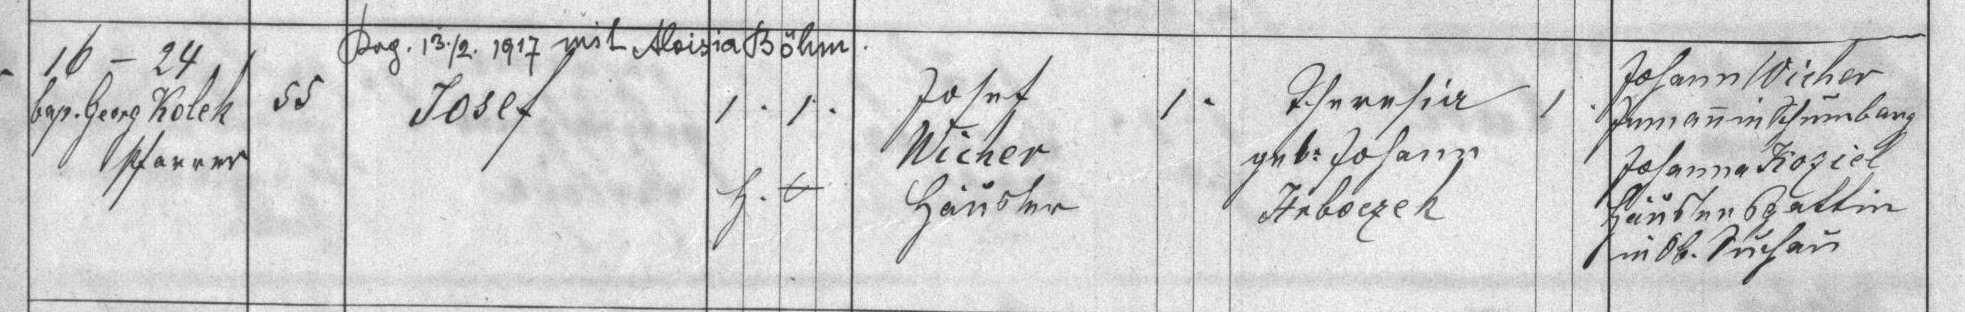 16 – 24
bap. Georg Kolek
Pfarrer
55
Prag. 13./2. 1917 mit Aloisia Böhm.
Josef
1 . 1 .
H. t
Josef
Wicher
Häusler
1 .
Theresia
geb: Johann
Hrboczek
1 .
Johann Wicher
Inmann in Schumbarg
Johanna Koziel
Häuslersgattin
in Ob. Suchau